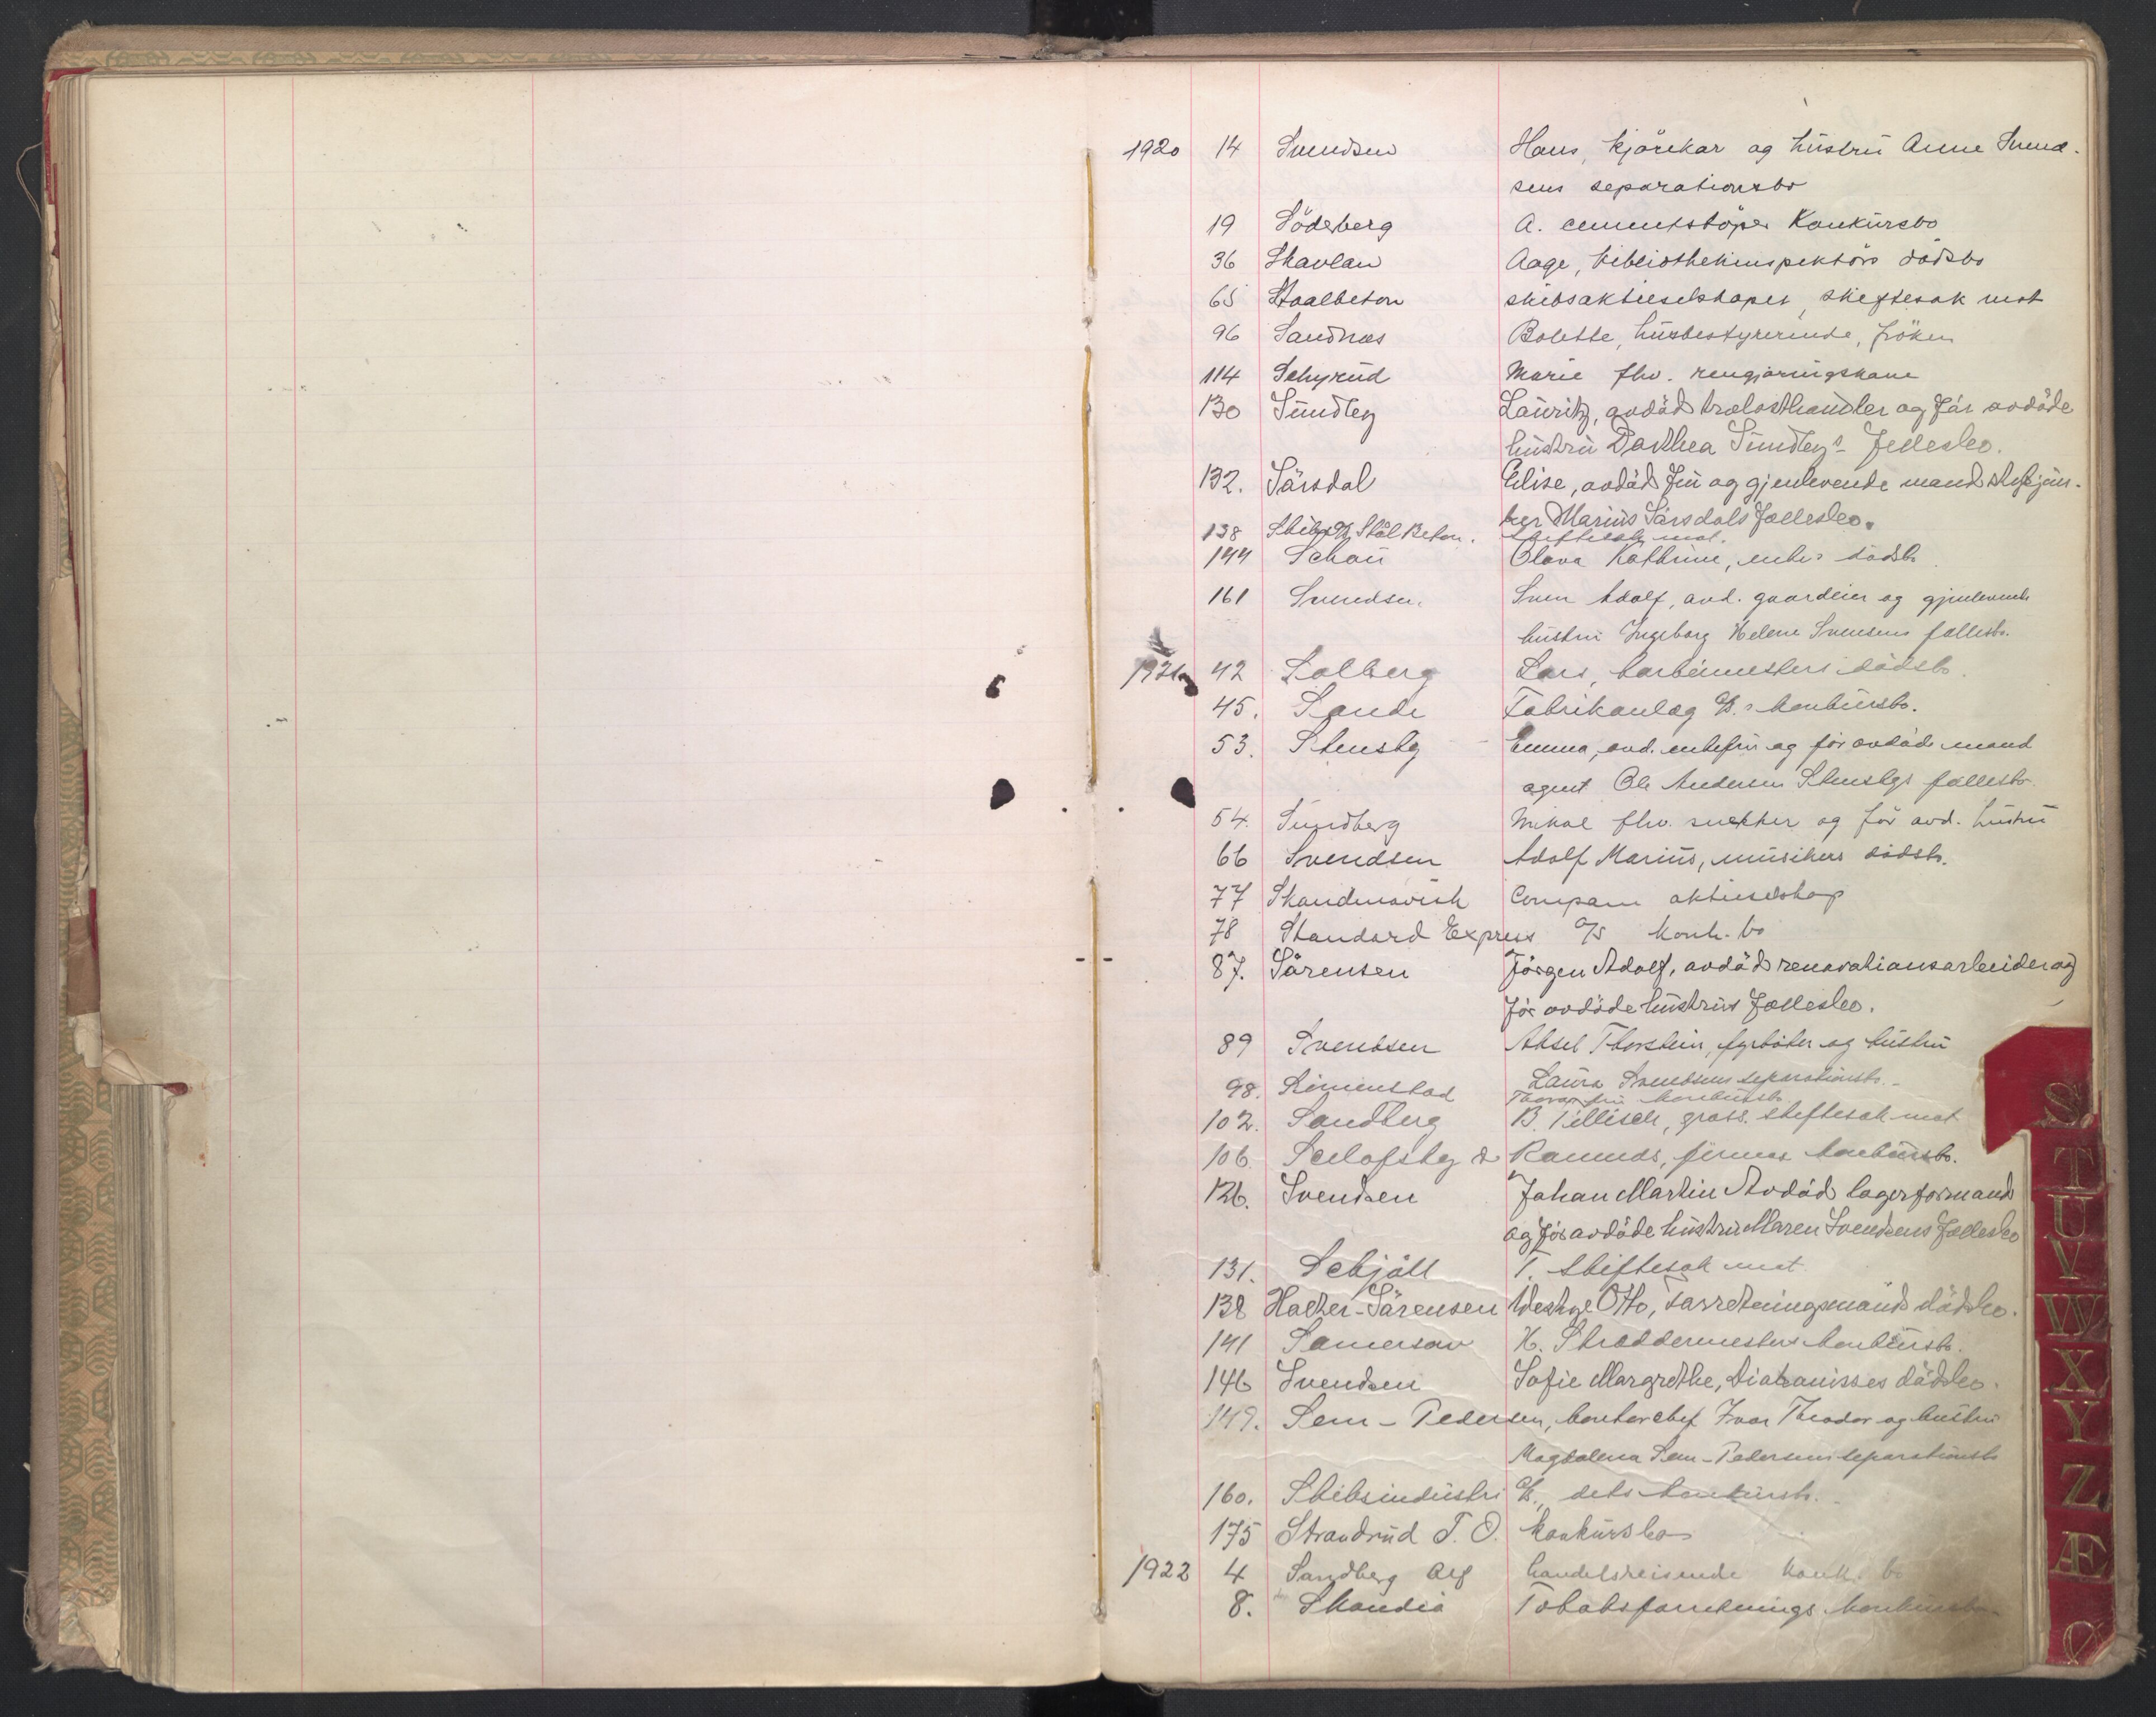 1920 14 Svendsen Hans, kjørekar og hustru Anne Svend-
sens separationsbo
19 Söderberg A. cementstøper Konkursbo
36 Skavlan Aage, bibliothekinspektørs dødsbo
65 Staalbeton skibsaktieselskapet, skiftesak mot
96 Sandnæs Bolette, husbestyrerinde, frøken
114 Schyrud Marie fhv. rengjøringskone
130 Sundby Lauritz, avdød trælasthandler og før avdøde
hustru Dorthea Sundby's Fellesbo.
132. Sørsdal Elise, avdød fru og gjenlevende mand
Marius Sørsdals Fællesbo.
138 Skibs A/S Stål Beton. Skiftesak mot.
144 Schou Olava Kathrine, enkes dødsbo
161 Svendsen. Sven Adolf, avd. gaardeier og gjenlevende
hustru Ingeborg Helene Svensens fællesbo.
1921 42 Solberg Lars, dødsbo.
45. Sande Fabrikanlæg A/S.s konkursbo.
53. Stensby Emma, avd. enkefru og før avdøde mand
agent Ole Andersen Stensbys fællesbo.
54. Sundberg Mikal fhv. snekker og før avd. hustru
66 Svendsen Adolf Marius, musikers dødsbo.
77 Skandinavisk Compani aktieselskap
78 Standard Express A/S konk. bo
87. Sørensen Jørgen Adolf, avdød renovationsarbeider og
før avdøde hustrus Fællesbo.
89 Svendsen Aksel Thorstein, fyrbøter og hustru
Laura Svendsens separationsbo.
98. Simenstad fru konkursbo.
102. Sandberg B. Tillisch, gross. skiftesak mot
106. & Ramnds, firmas konkursbo.
126. Svendsen Johan Martin Avdød lagerformand
og før avdøde hustru Maren Svendsens Fællesbo
131. Schjøll T. Skiftesak mot
138 Hacker-Sørensen Otto, forretningsmands dødsbo.
141 Samersaw H. Skræddermesters konkursbo.
146 Svendsen Sofie Margrethe, Diakonisses dødsbo.
149. Sem-Pedersen, kontorchef Ivar Theodor og hustru
Magdalena Sem-Pedersens separationsbo
160. Skibsindustri A/S, dets konkursbo.
175 Strandrud T. O. konkursbo
1922 4 Sandberg Alf handelsreisende konk. bo
8. Skandia Tobaksforretnings konkursbo.
S
T
U
V
W
X
Y
Z
Æ
Ø